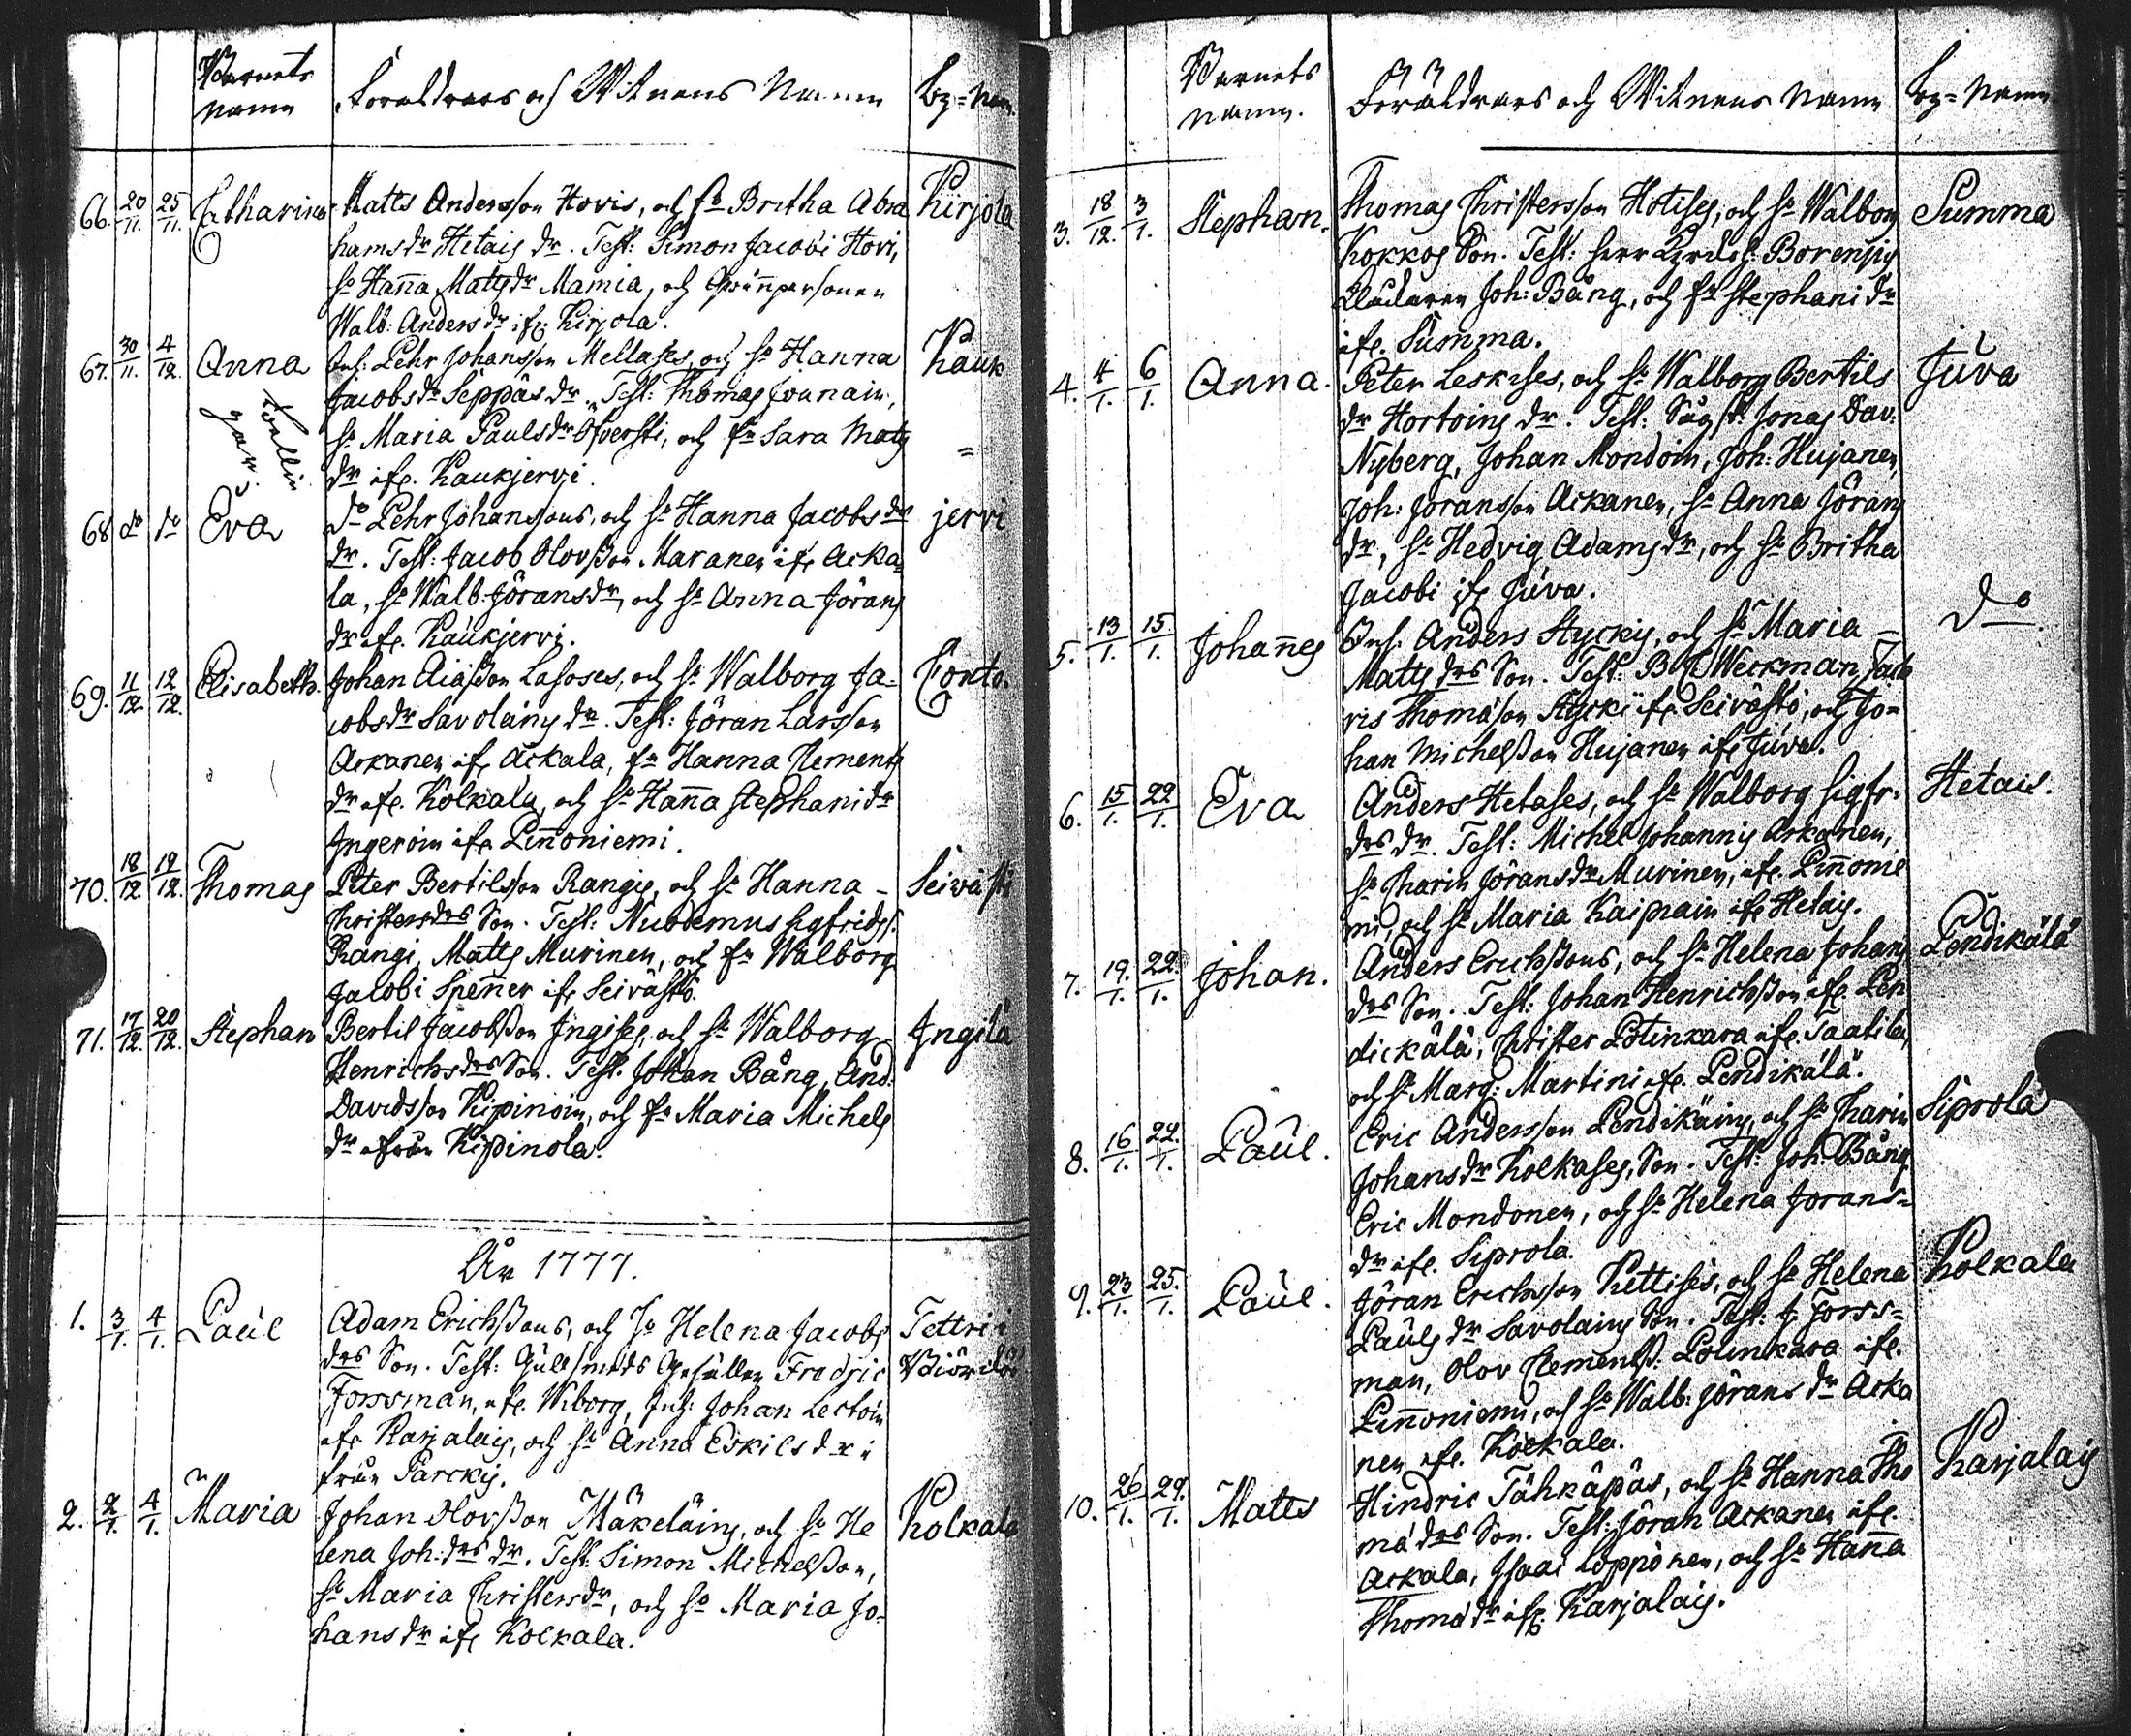 Barnets
namn
Föräldrars och Witnens Namn
By=Namn
66. 20/11. 25/11. Catharina Matts Andersson Hovis, och h:o Britha Abra Kirjola
hams dr Hetais dr. Test: Simon Jacobi Hovi,
h:o Hanna Mattsdr Mamia, och qvinnpersonen
Walb: Andersdr ifr. Kirjola.
67. 30/11. 4/12. Anna Inh: Pehr Johansson Mellases, och h:o Hanna Kauk
Jacobsdr Seppäs dr. Test: Thomas Jounain,
h:o Maria Paulsdr Öfversti, och h:o Sara Mats =
dr ifr. Kaukjervi.
68 do do Eva do Pehr Johanssons, och h:o Hanna Jacobsdr jervi
dr. Test: Jacob Olovsson Maranen ifr Acka=
la, h:o Walb: Göransdr, och h:o Anna Görans
dr ifr. Kaukjervi.
69. 11/12. 12/12. Elisabeth. Johan Lasoses, och h:o Walborg Ja=
cobsdr Savolains dr. Test: Jöran Larsson
Ackanen ifr Ackala, h:o Hanna Clements
dr ifr. Kolkala, och h:o Hanna Stephanidr
Ingeroin ifr Pinnoniemi.
70. 18/12. 19/12. Thomas Peter Bertilsson Rangis, och h:o Hanna - Seivästö
Christersdrs Son. Test: Sigfridss.
Rangi, Matts Murinen, och h:o Walborg
Jacobi Spenner ifr Seivästö.
71. 17/12. 20/12. Stephan Bertil Jacobsson Ingises, och h:o Walborg Ingilä
Henrichsdrs Son. Test: Johan Bång, And:
Davidsson Kipinoin, och h:o Maria Michels
dr ifrån Kipinola.
År 1777.
1. 3/1. 4/1. Paul Adam Erichssons, och h:o Helena Jacobs Tettri i
drs Son. Test: Gullsmeds Gesällen Fredric Biörckö
Forssman, ifr. Wiborg, Inh: Johan Lectoin
ifr Karjalais, och h:o Anna Eskilsdr i
från Parckis.
2. 2/1. 4/1. Maria Johan Olovsson Mäkeläins, och h:o He Kolkala
lena Joh:drs dr. Test: Simon Michelsson,
h:o Maria Christersdr, och h:o Maria Jo=
hansdr ifr Kolkala.
Barnets
namn.
Föräldrars och Witnens Namn
By=Namn
3. 18/12. 3/1. Stephan. Thomas Christersson Hotises, och h:o Walborg Summa
Kokkos Son. Test: herr Borenjus
Joh: Bång, och h:o Stephanidr
ifr. Summa.
4. 4/1. 6/1. Anna. Peter Leskises, och h:o Walborg Bertils Juva
dr Hortoins dr. Test: Jonas Dav:
Nyberg, Johan Mondoin, Joh: Hujanen,
Joh: Joransson Ackanen, h:o Anna Jörans
dr, h:o Hedvig Adamsdr, och h:o Britha
Jacobi ifr Juva.
5. 13/1. 15/1. Johannes Inh: Anders Styckis, och h:o Maria - do
Matts drs Son. Test: Weckman,
ris Thomason Stycki ifr Seivästö, och Jo=
han Michelsson Hujanen ifr Juva.
6. 15/1. 22/1. Eva Anders Hetases, och h:o Walborg Sigfr. Hetais.
drs dr. Test: Michel Johannis Ackanen,
h:o Charin Göransdr Murinen, ifr. Pinnonie
mi, och h:o Maria Kaipiain ifr Hetais.
7. 19/1. 22/1. Johan. Anders Erichssons, och h:o Helena Johans Pendikälä
drs Son. Test: Johan Henrichsson ifr. Pen
dickälä, Christer Potinkara ifr. Taatila,
och h:o Marg: Martini ifr. Pendikälä.
8. 16/1. 22/1. Paul. Eric Andersson Pendikäins, och h:o Charin Siprola
Johansdr Kolkases, Son. Test: Joh: Bång,
Eric Mondonen, och h:o Helena Jorans=
dr ifr. Siprola.
9. 23/1. 25/1. Paul. Jöran Erichsson Kettises, och h:o Helena Kolkala
Pauls dr Savolains Son. Test: F. Forss=
man, Olov Clementss. Potinkara ifr.
Pinnoniemi, och h:o Walb: Jörans dr Acka
nen ifr. Kolkala.
10. 26/1. 29/1. Matts Hindric Tähkäpäs, och h:o Hanna Tho Karjalais
mä drs Son. Test: Jöran Ackanen ifr.
Ackala, Isaac Loppönen, och h:o Hanna
Thomä dr ifr. Karjalais.